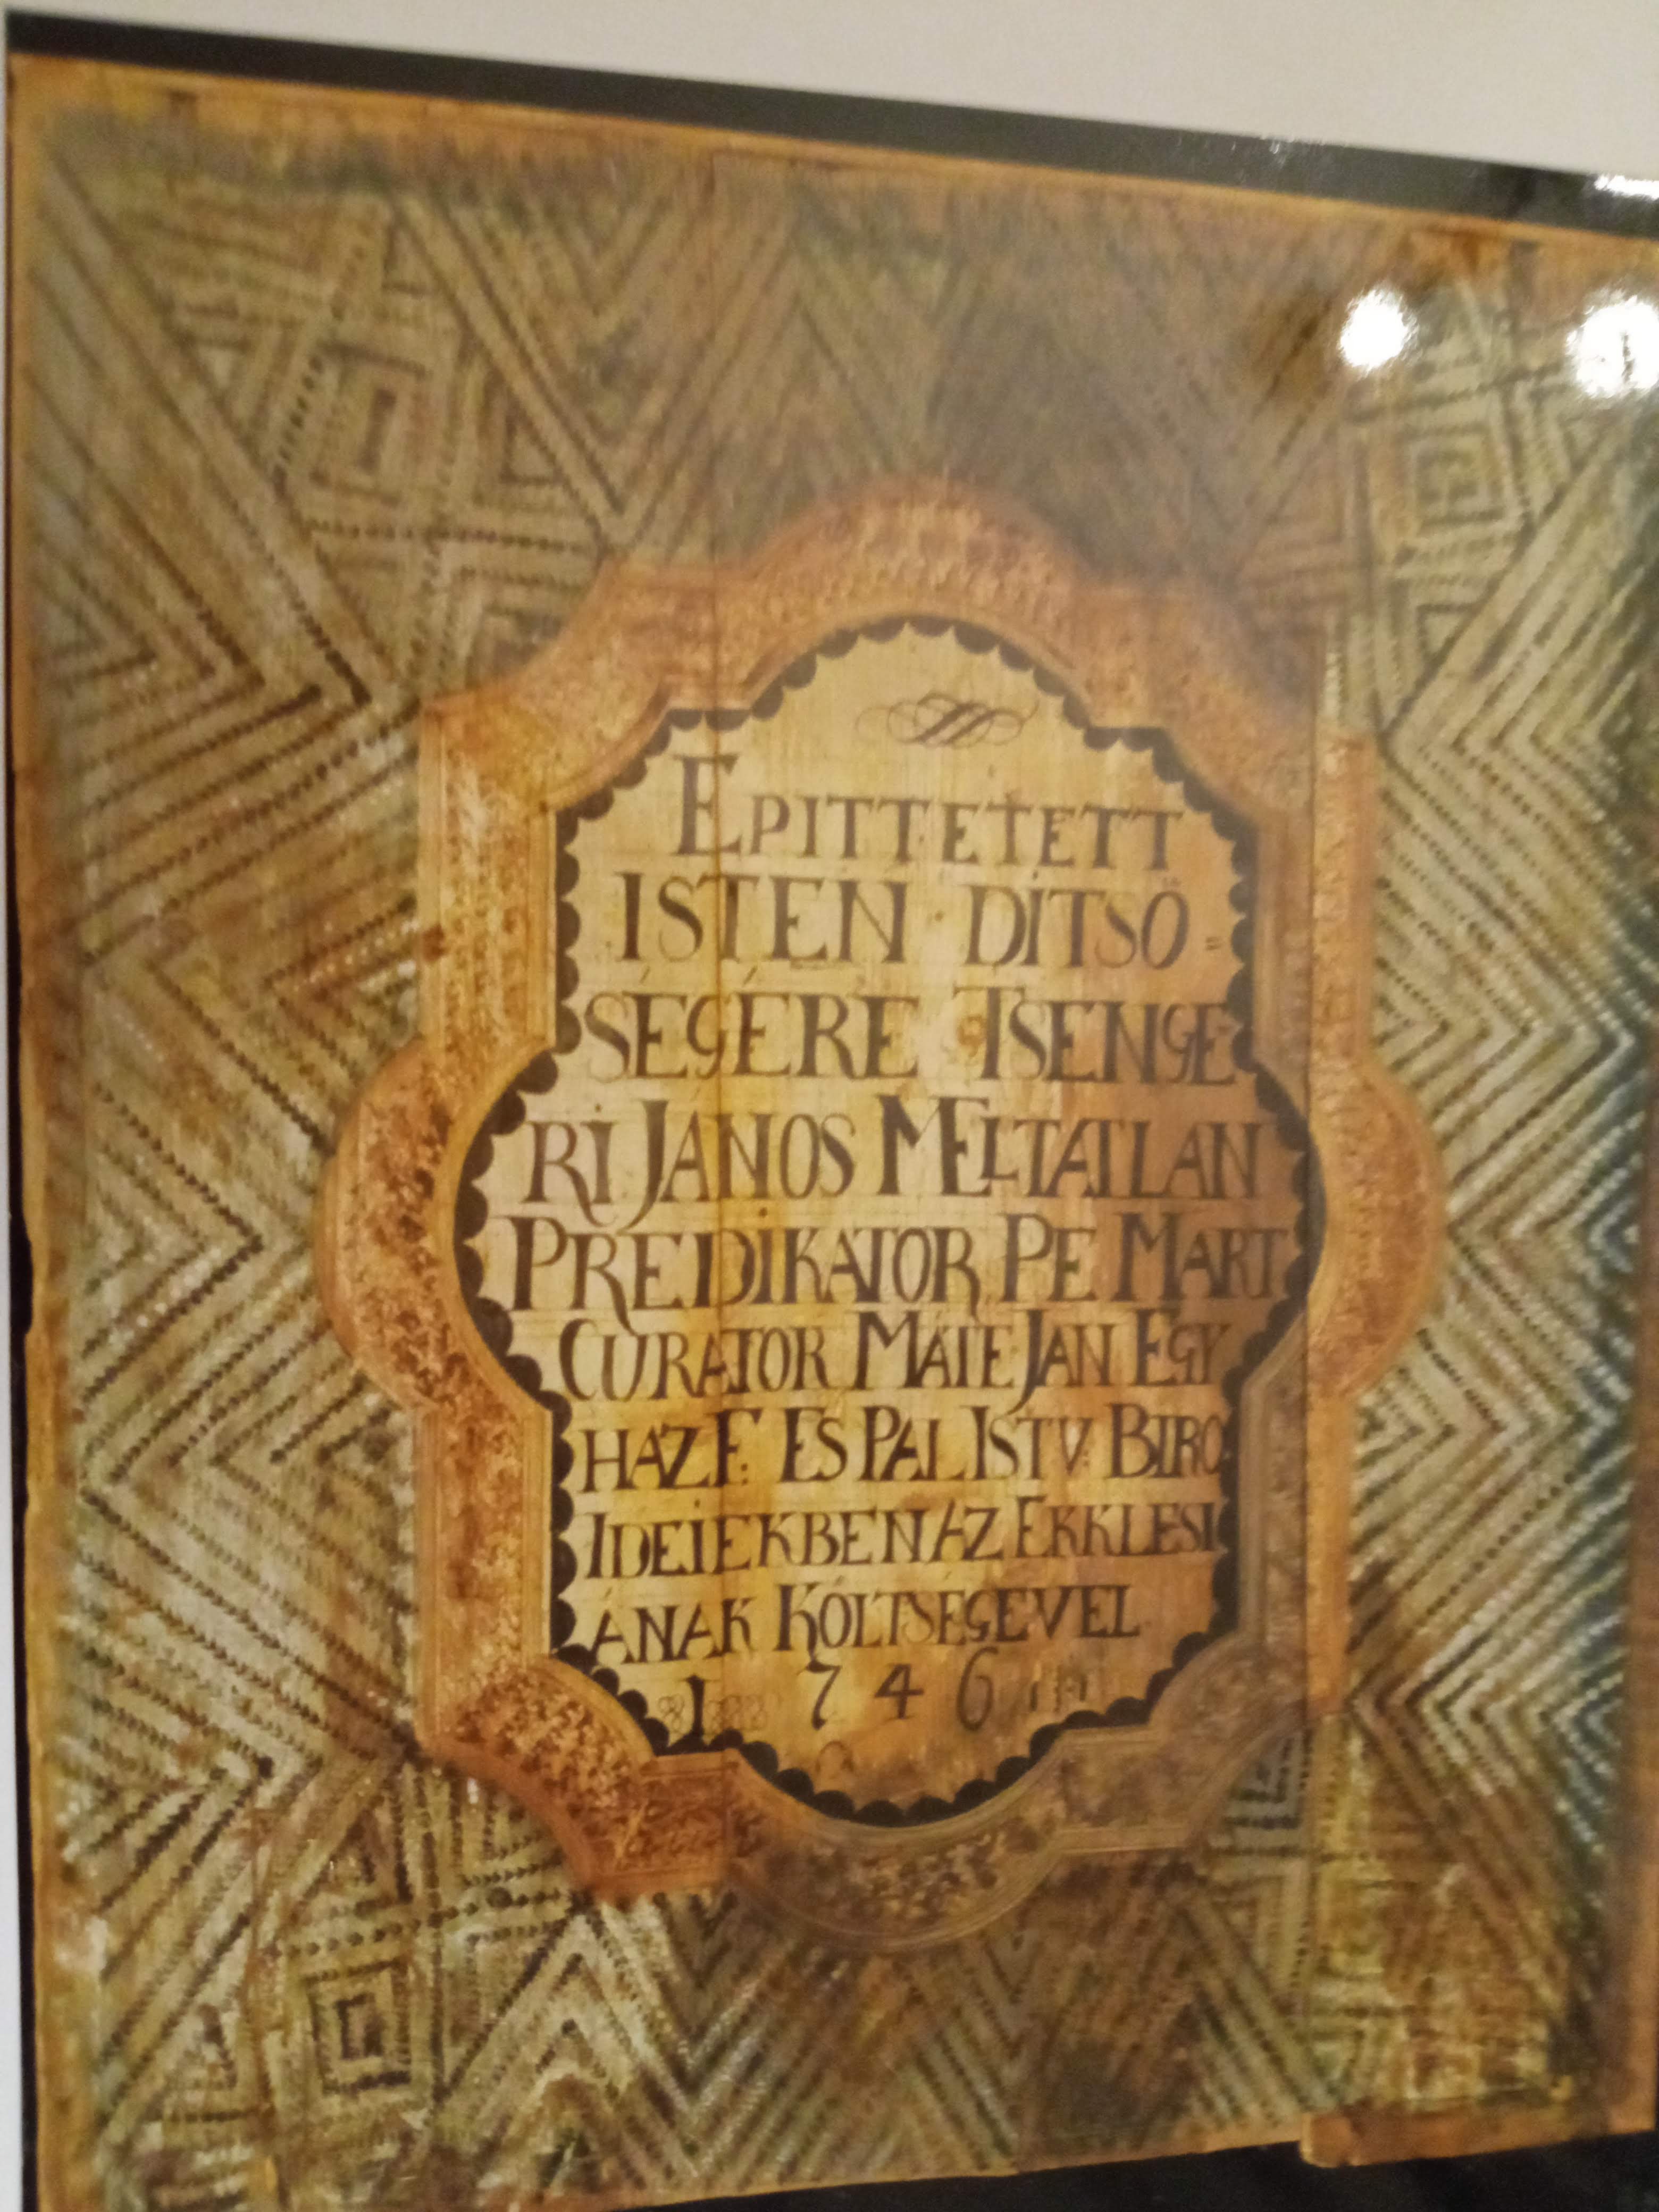 EPITTETETT
ISTEN DITSÖ =
SÉGÉRE TSENGE
RI JÁNOS MELTATLAN
PREDIKATOR PE MART
CURATOR MATE JAN EGY
HAZF: ES PAL ISTV: BIRO
IDEIEKBEN AZ EKKLESI
ÁNAK KÖLTSÉGEVEL
1746